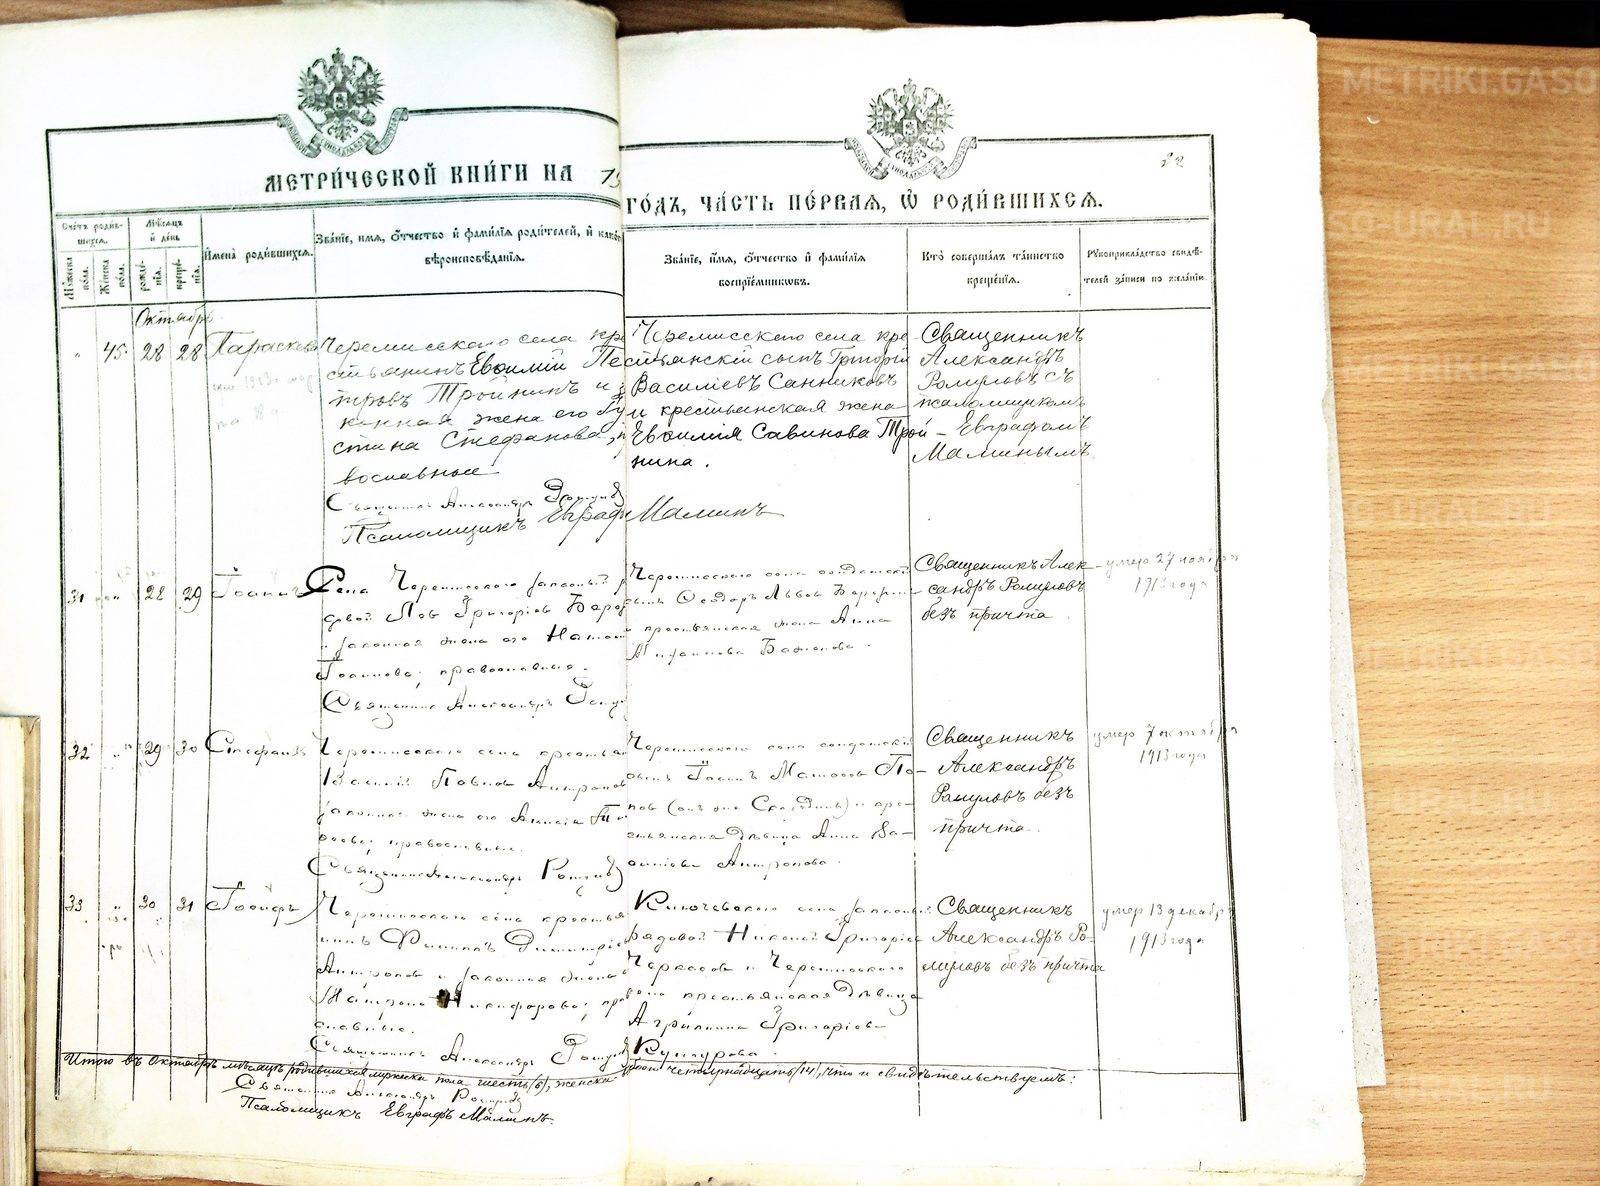 МЕТРИ́ЧЕСКОЙ КНИ́ГИ НА 19
ГО́ДЪ, ЧА́СТЬ ПЕ́РВАЯ, Ѡ РОДИ́ВШИХСЯ.
22
Сче́тъ роди́вшихся.
Му́жеска по́ла.
Же́нска по́ла.
Мѣ́сяцъ и де́нь
рожде́нія.
креще́нія.
И҆мена̀ роди́вшихся.
Зва́ніе, и́мя, о́тчество и҆ фами́лія роди́телей, и҆ како́
вѣроисповѣ́данія.
Зва́ніе, и́мя, о́тчество и҆ фами́лія
воспріе́мниковъ.
Кто̀ соверша́лъ та́инство
креще́нія.
Рукоприкла́дство свидѣ́-
телей за́писи по жела́нію.
Октябрь
45 28 28 Параскева
Черемисскаго села кре
стьянинъ Евѳимій Пе
тровъ Тройнинъ и за
конная жена его
стина Стефанова,
вославные
Священникъ Александръ Ромулов
Псаломщикъ Евграфъ Малинъ
Черемисскаго села кре
стьянскій сынъ Григорій
Василіевъ Санниковъ
и крестьянская жена
Евѳимія Савинова Трой-
нина.
Священникъ
Александръ
Ромуловъ съ
псаломщикомъ
Евграфомъ
Малинымъ
31 28 29 Іоаннъ
Села Черемисскаго запасный р
довой Левъ Григоріев
и законная жена его
Іоаннова; православные.
Священник Александръ Рому
Черемисскаго села солдатскій
сынъ Ѳеодоръ Львов
и крестьянская жена Анна
Священникъ Алек-
сандръ Ромуловъ
безъ причта
умер 27 ноября
1913 года
32 29 30 Стефанъ
Черемисскаго села крестьян
Василій Павлов Антропов
законная жена его
православные.
Священник Александръ Ромулов
Черемисскаго села солдатскій
сынъ По-
пов (онъ же) и кре-
стьянская дѣвица Анна Ва-
силіева Антропова.
Священникъ
Александръ
Ромуловъ безъ
причта.
умер 7 октября
1913 года
33 30 31 Іосифъ
Черемисскаго села крестья
нинъ Филиппъ Димитріев
Антропов и законная жена
Матрона Никифорова; пра
славные.
Священникъ Александръ Ромулов
Ключевскаго села запасный
рядовой Николай Григоріев
Черкасов и Черемисскаго
села крестьянская дѣвица
Агриппина Григоріева
Кунгурова.
Священникъ
Александръ Ро-
муловъ безъ причта
умер 13 декабря
1913 года
Итого въ Октябрѣ мѣсяцѣ родившихся мужеска пола шесть (6), женска четырнадцать (14), что и свидѣтельствуемъ:
Священник Александръ Ромулов
Псаломщикъ Евграфъ Малинъ.
METRIKI.GASO
SO-URAL.RU